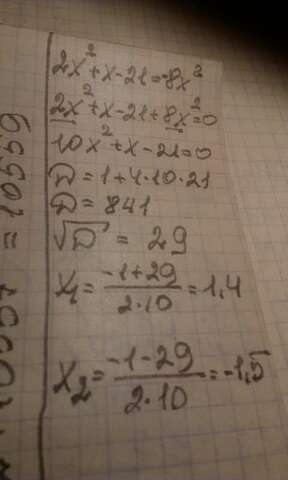 2x²+x-21=-8x²
2x²+x-21+8x²=0
10x²+x-21=0
D=1+4·10·21
D=841
√D = 29
x₁= -1+29 / 2·10 =1,4
x₂= -1-29 / 2·10 =-1,5